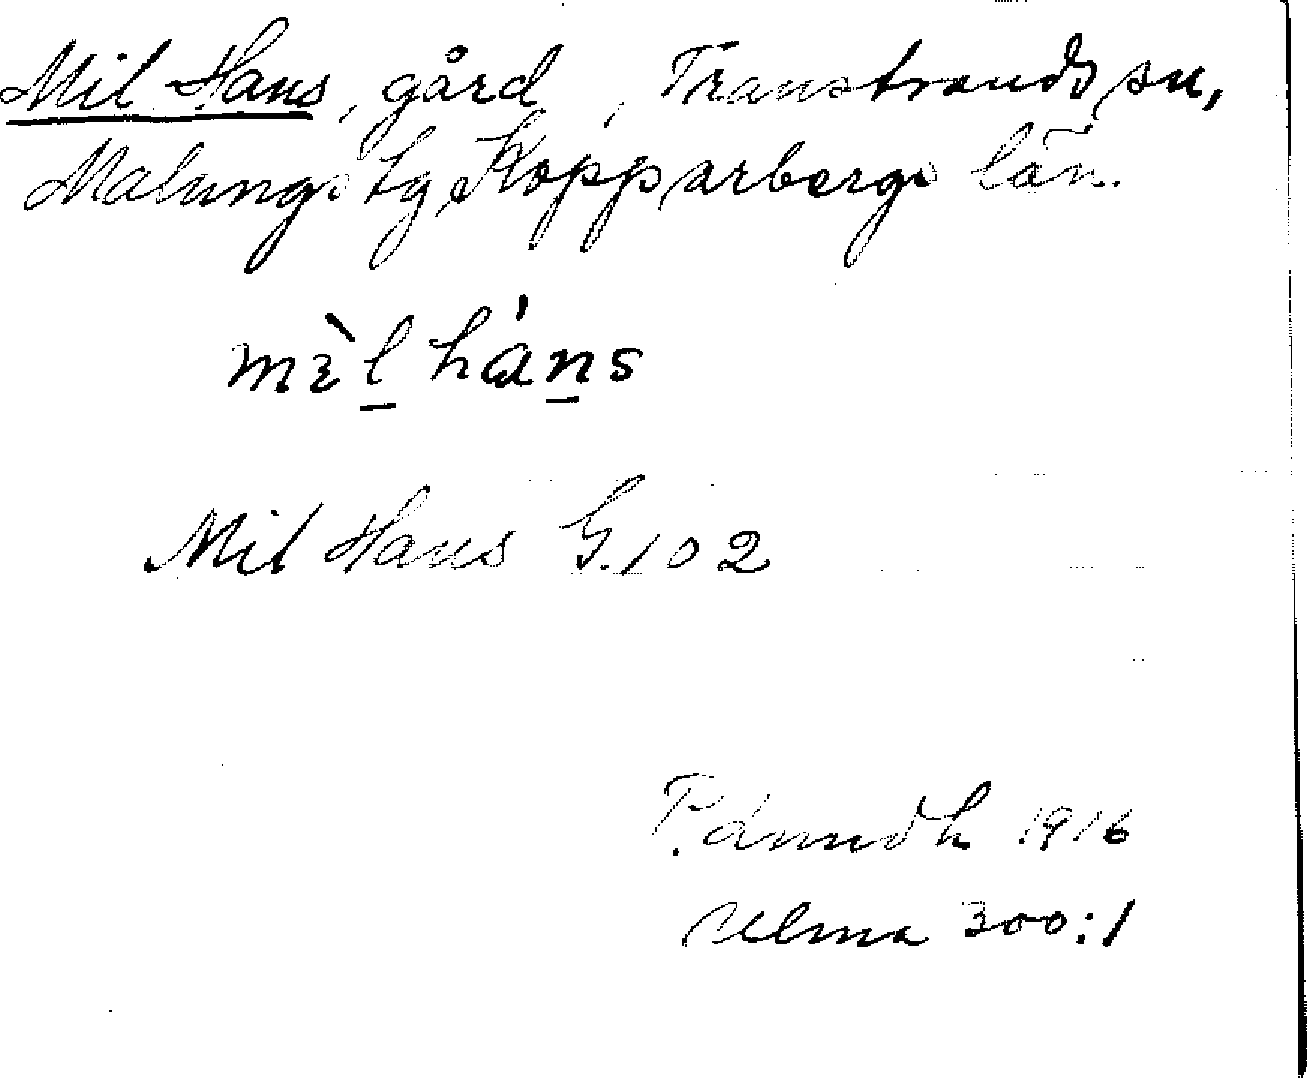 Mil Hans, gård, Transtrands sn,
Malungs tg, Kopparbergs län.
mɛ̀l̲ hán̲s
Mil Hans G. 102
P. Ämudh 1916
Ulma 300:1